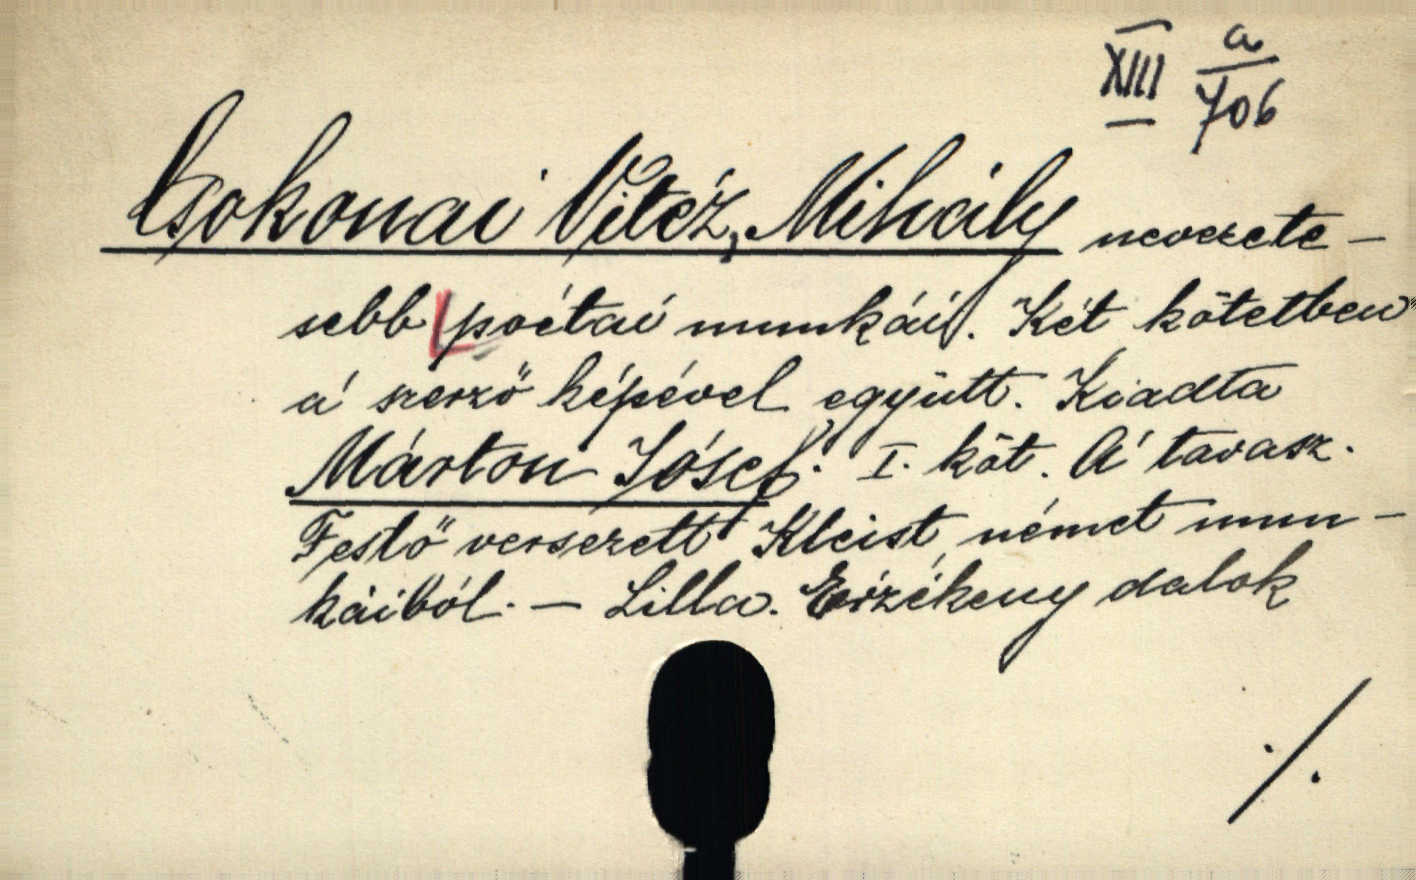 XIII a/706
Csokonai Vitéz, Mihály nevezete-
sebb poétai munkái. Két kötetben
a' szerző képével együtt. Kiadta
Márton Jósef. I. köt. A' tavasz.
Festő versezett Kleist német mun-
káiból. — Lilla. Érzékeny dalok
./.